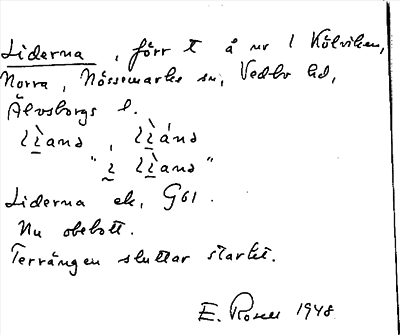 Liderna, förr t å nr 1 Kölviken,
Norra, Nössemarks sn, Vedbo hd,
Älvsborgs l.
Liderna ek. G61.
Nu obebott.
Terrängen sluttar starkt.
E. Rosell 1948